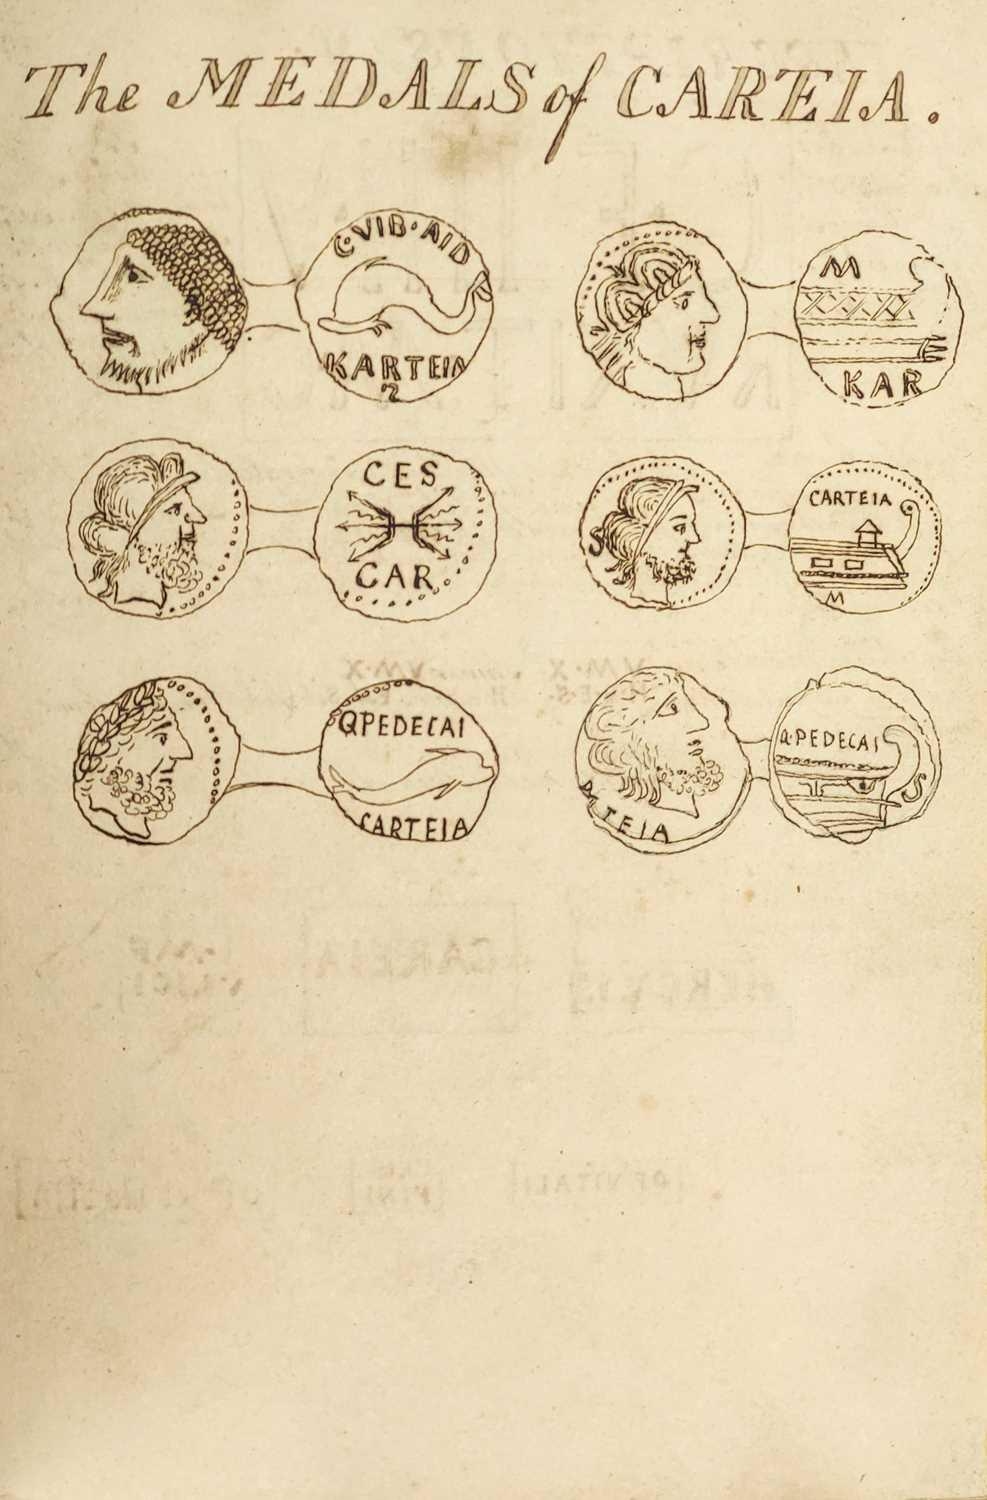 The MEDALS of CARTEIA.
C·VIB·AID
KARTEIA
M
KAR
CES
CAR
S
CARTEIA
M
Q·PEDECAI
CARTEIA
TEIA
Q·PEDECAI
S